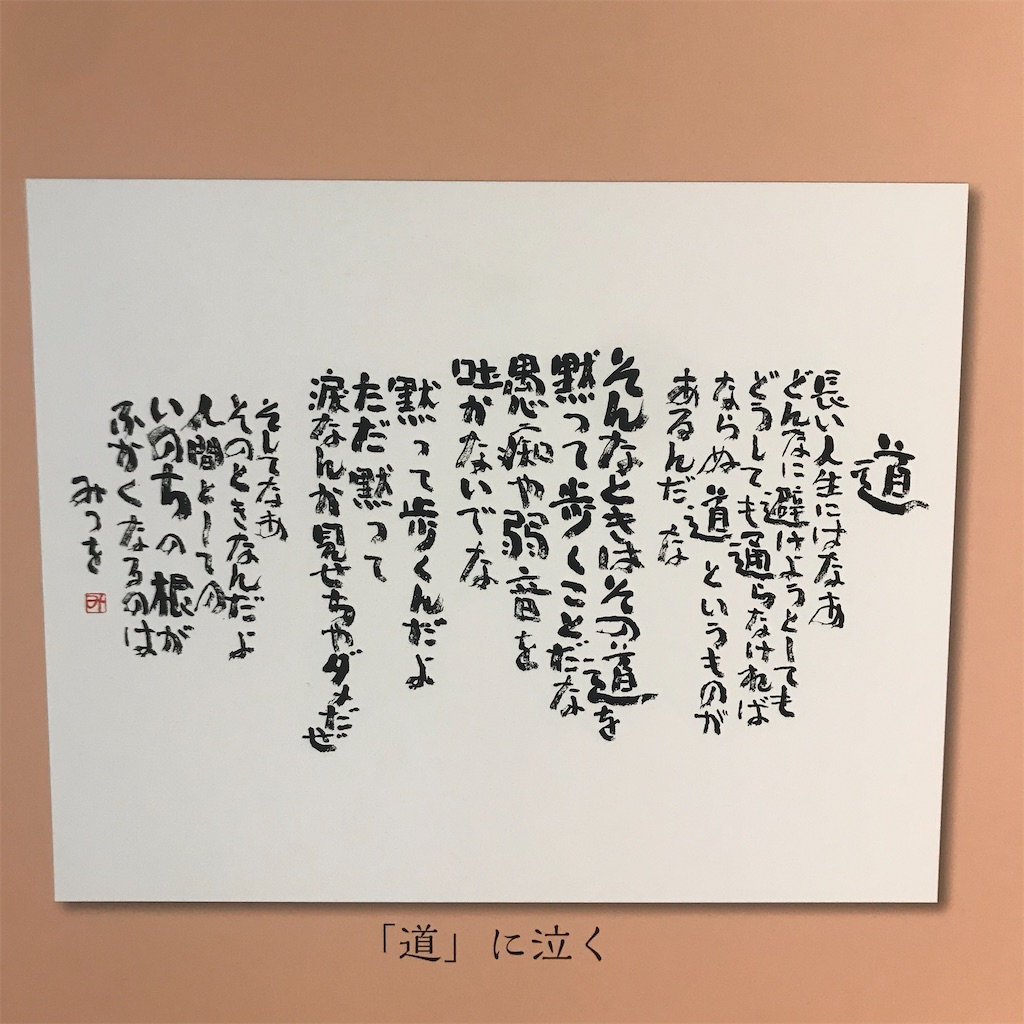 道
長い人生にはなあ
どんなに避けようとしても
どうしても通らなければ
ならぬ道というものが
あるんだな
そんなときはその道を
黙って歩くことだな
愚痴や弱音を
吐かないでな
黙って歩くんだよ
ただ黙って
涙なんか見せちゃダメだぜ
そしてなあ
そのときなんだよ
人間としての
いのちの根が
ふかくなるのは
みつを
み
「道」に泣く